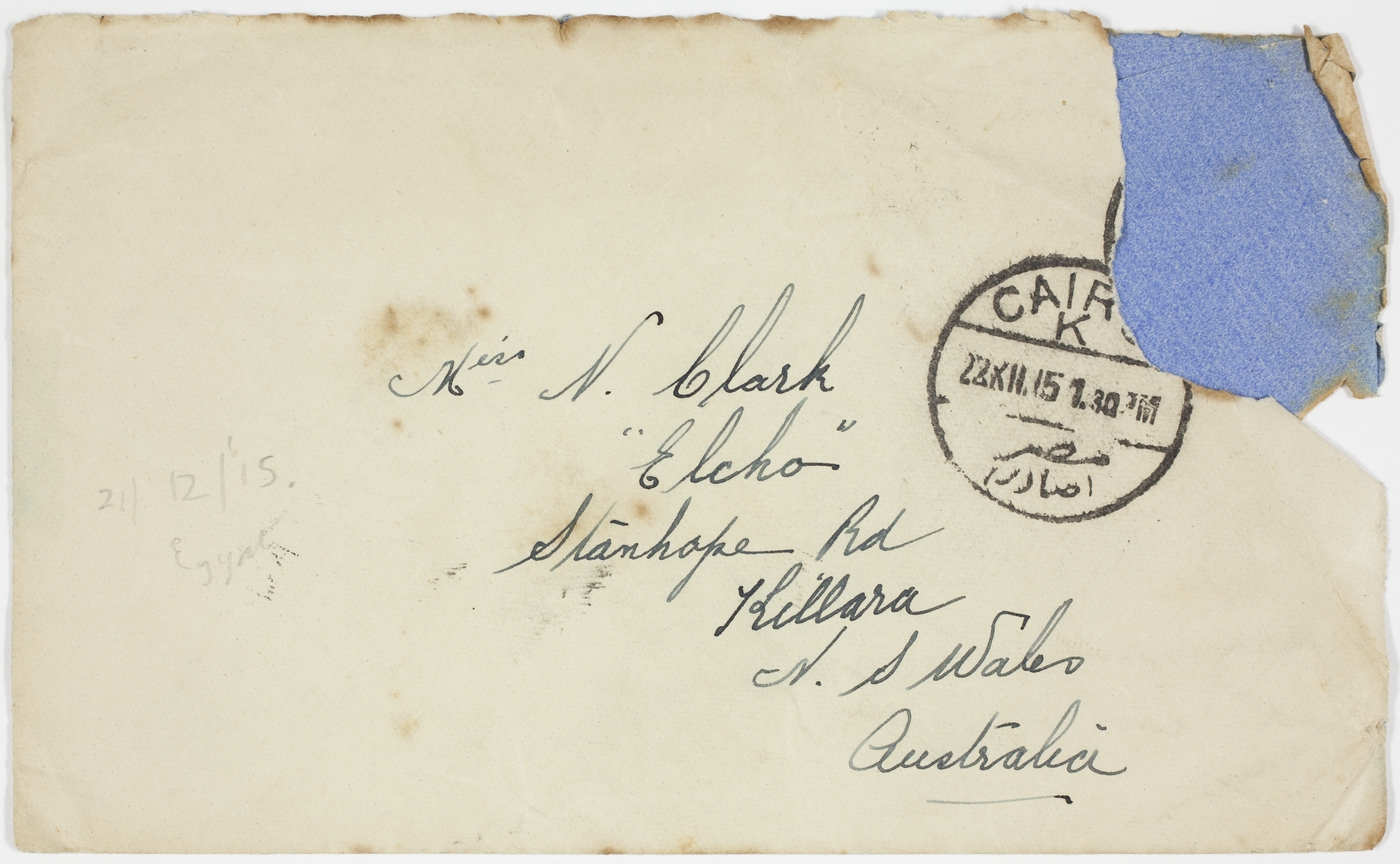 Miss N. Clark
"Elcho"
Stanhope Rd
Killara
N. S Wales
Australia
21/12/'15.
Egypt
CAIR
K
XII.15 1.30 PM
مصر